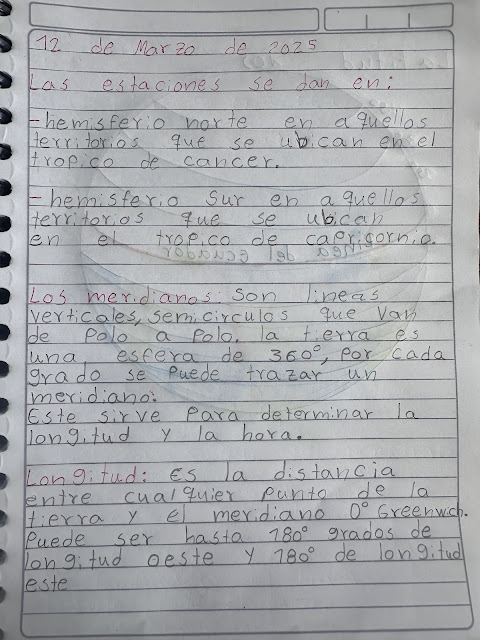 12 de Marzo de 2025
Las estaciones se dan en:
-hemisferio norte en aquellos
territorios que se ubican en el
tropico de cancer.
-hemisferio sur en aquellos
territorios que se ubican
en el tropico de capricornio.
Los meridianos: Son lineas
verticales, semicirculos que van
de polo a polo. la tierra es
una esfera de 360°, por cada
grado se puede trazar un
meridiano.
Este sirve para determinar la
longitud y la hora.
Longitud: Es la distancia
entre cualquier punto de la
tierra y el meridiano 0° Greenwch.
Puede ser hasta 180° grados de
longitud oeste y 180° de longitud
este